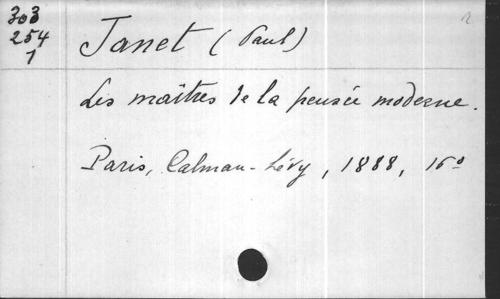 303
254
1
Janet (Paul)
Les maîtres de la pensée moderne.
Paris, Calman-Lévy, 1888, 16º